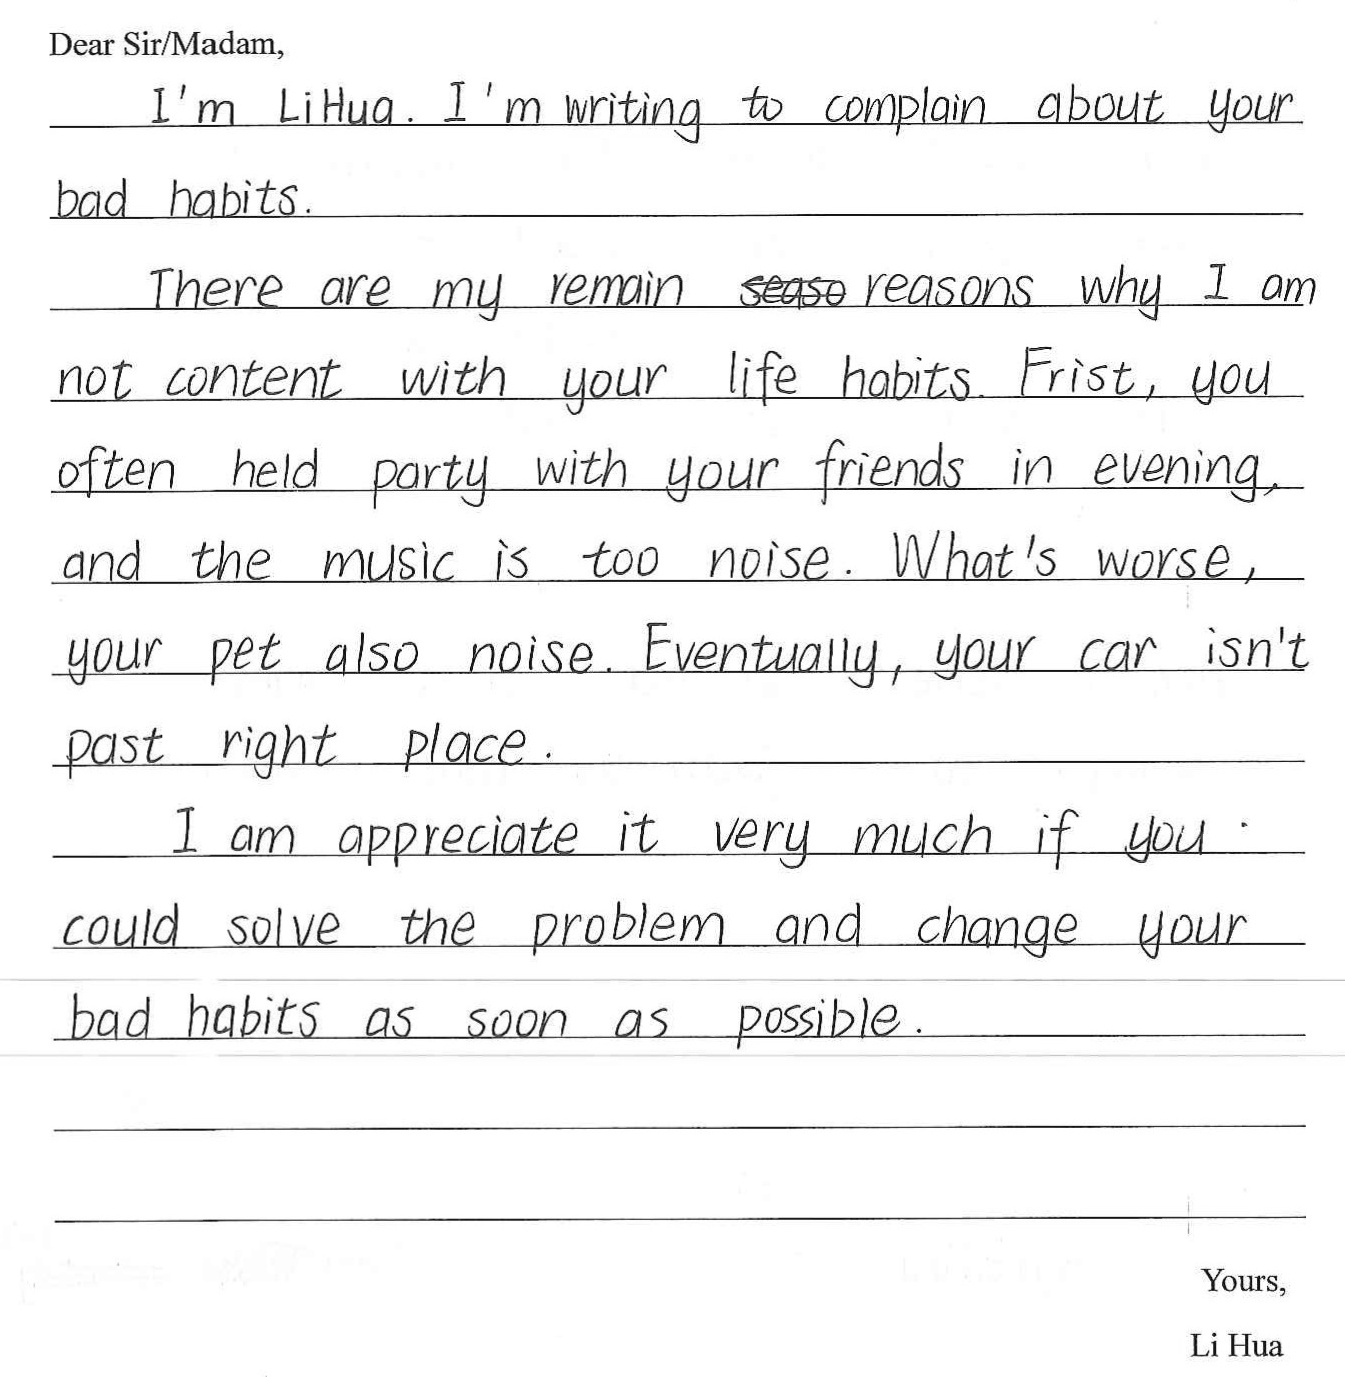 Dear Sir/Madam,
I'm LiHua. I'm writing to complain about your
bad habits.
There are my remain reasons why I am
not content with your life habits. Frist, you
often held party with your friends in evening,
and the music is too noise. What's worse,
your pet also noise. Eventually, your car isn't
past right place.
I am appreciate it very much if you
could solve the problem and change your
bad habits as soon as possible.
Yours,
Li Hua